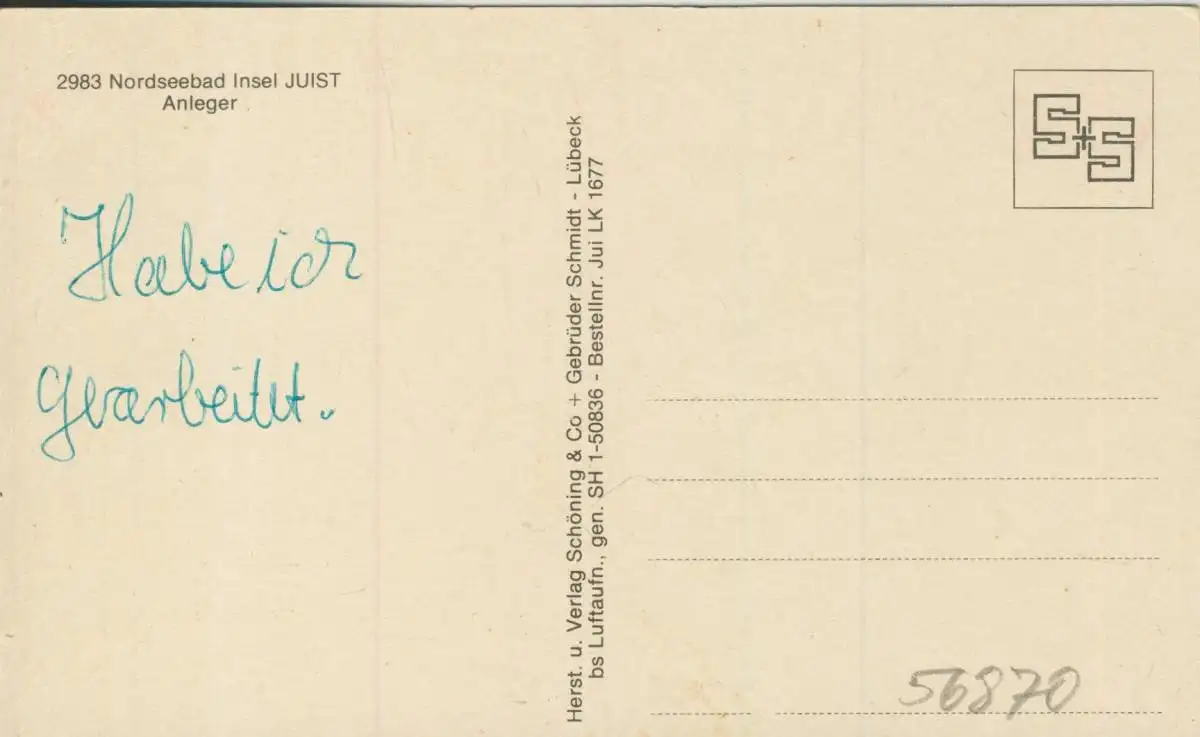 2983 Nordseebad Insel JUIST
Anleger
Habe ich
gearbeitet.
Herst. u. Verlag Schöning & Co + Gebrüder Schmidt - Lübeck
bs Luftaufn., gen. SH 1-50836 - Bestellnr. Jui LK 1677
S+S
56870